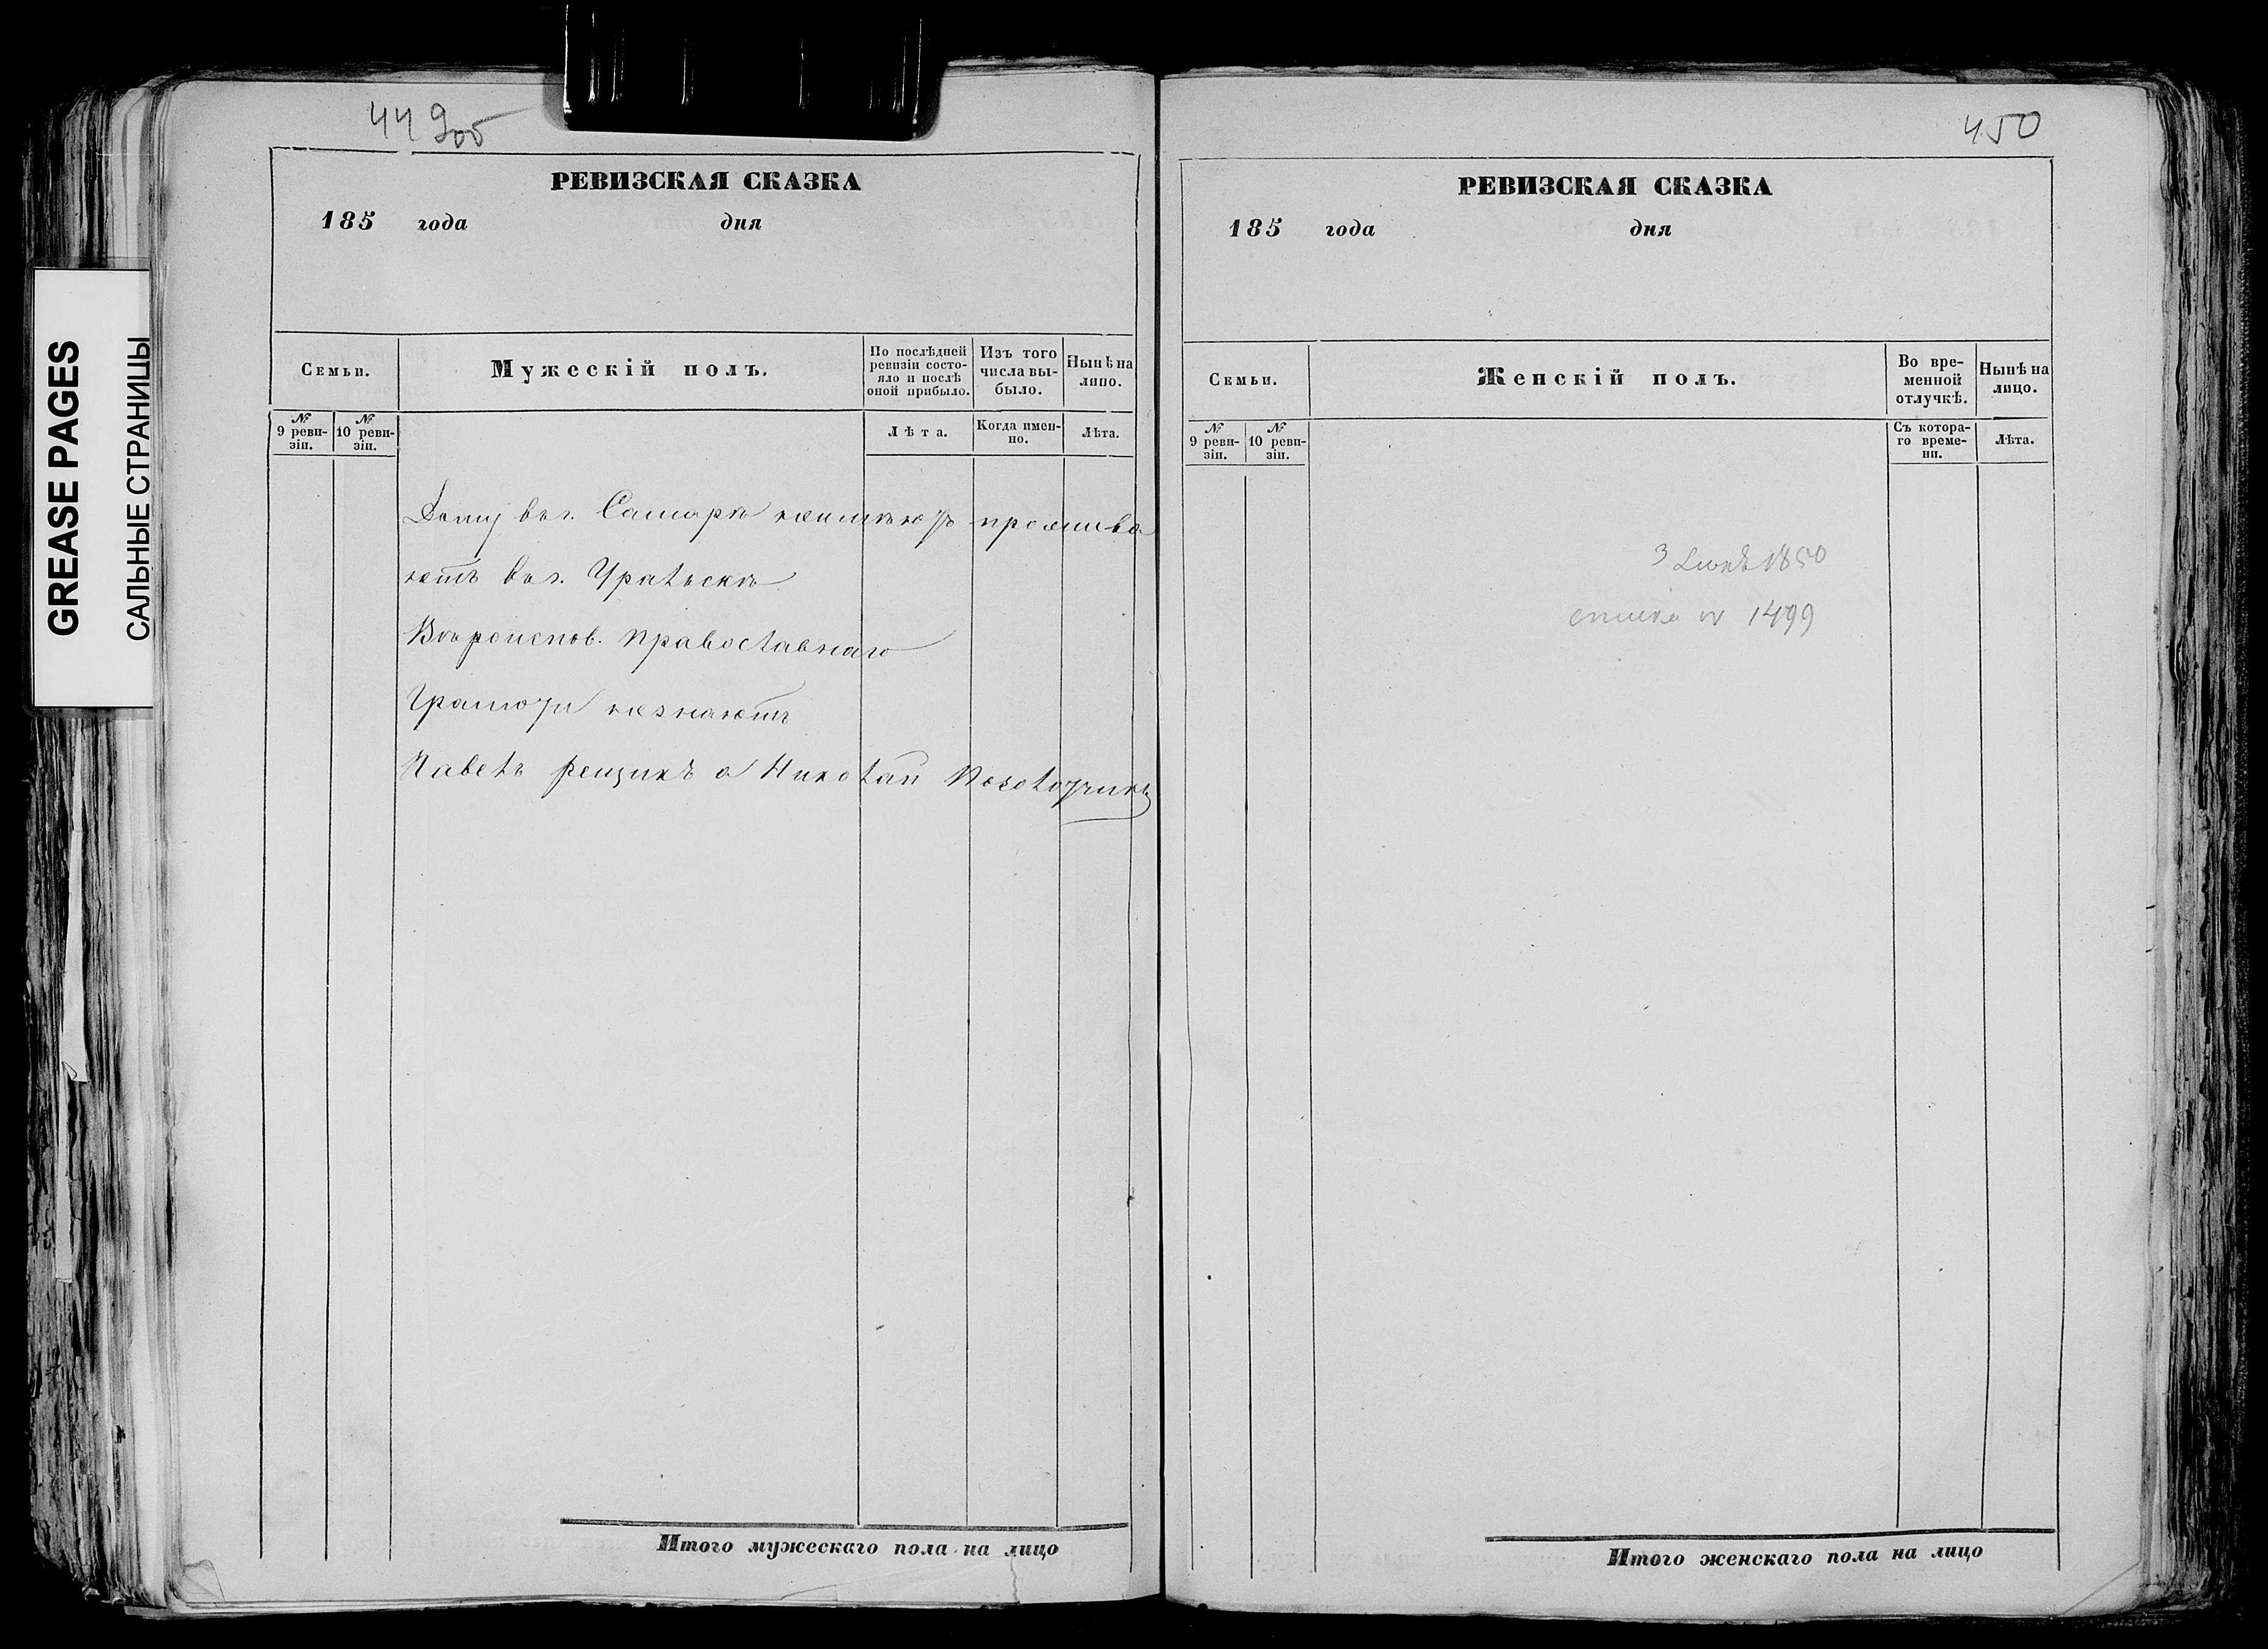 GREASE PAGES
САЛЬНЫЕ СТРАНИЦЫ
449об
РЕВИЗСКАЯ СКАЗКА
185 года дня
Семьи.
Мужескій полъ.
По послѣдней ревизіи состояло и послѣ оной прибыло.
Изъ того числа выбыло.
Нынѣ на лицо.
№ 9 ревизіи.
№ 10 ревизіи.
Лѣта.
Когда именно.
Лѣта.
Дому въ г. Самарѣ неимѣютъ прожива
ютъ въ г. Уральскѣ
Вѣроиспов. Православнаго
Грамоти незнаютъ
Павелъ рещикъ а Николай Позолотчикъ
Итого мужескаго пола на лицо
450
РЕВИЗСКАЯ СКАЗКА
185 года дня
Семьи.
Женскій полъ.
Во временной отлучкѣ.
Нынѣ на лицо.
№ 9 ревизіи.
№ 10 ревизіи.
Съ котораго времени.
Лѣта.
3 1850
1499
Итого женскаго пола на лицо